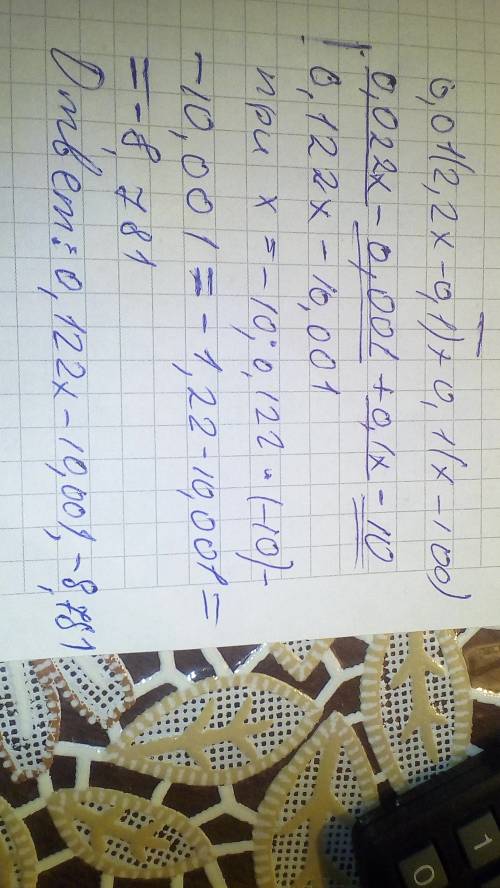 0,01(2,2x-0,1)+0,1(x-100)
0,022x-0,001+0,1x-10
0,122x-10,001
при x=-10; 0,122·(-10)-
-10,001=-1,22-10,001=
=-8,781
Ответ: 0,122x-10,001, -8,781
1
0